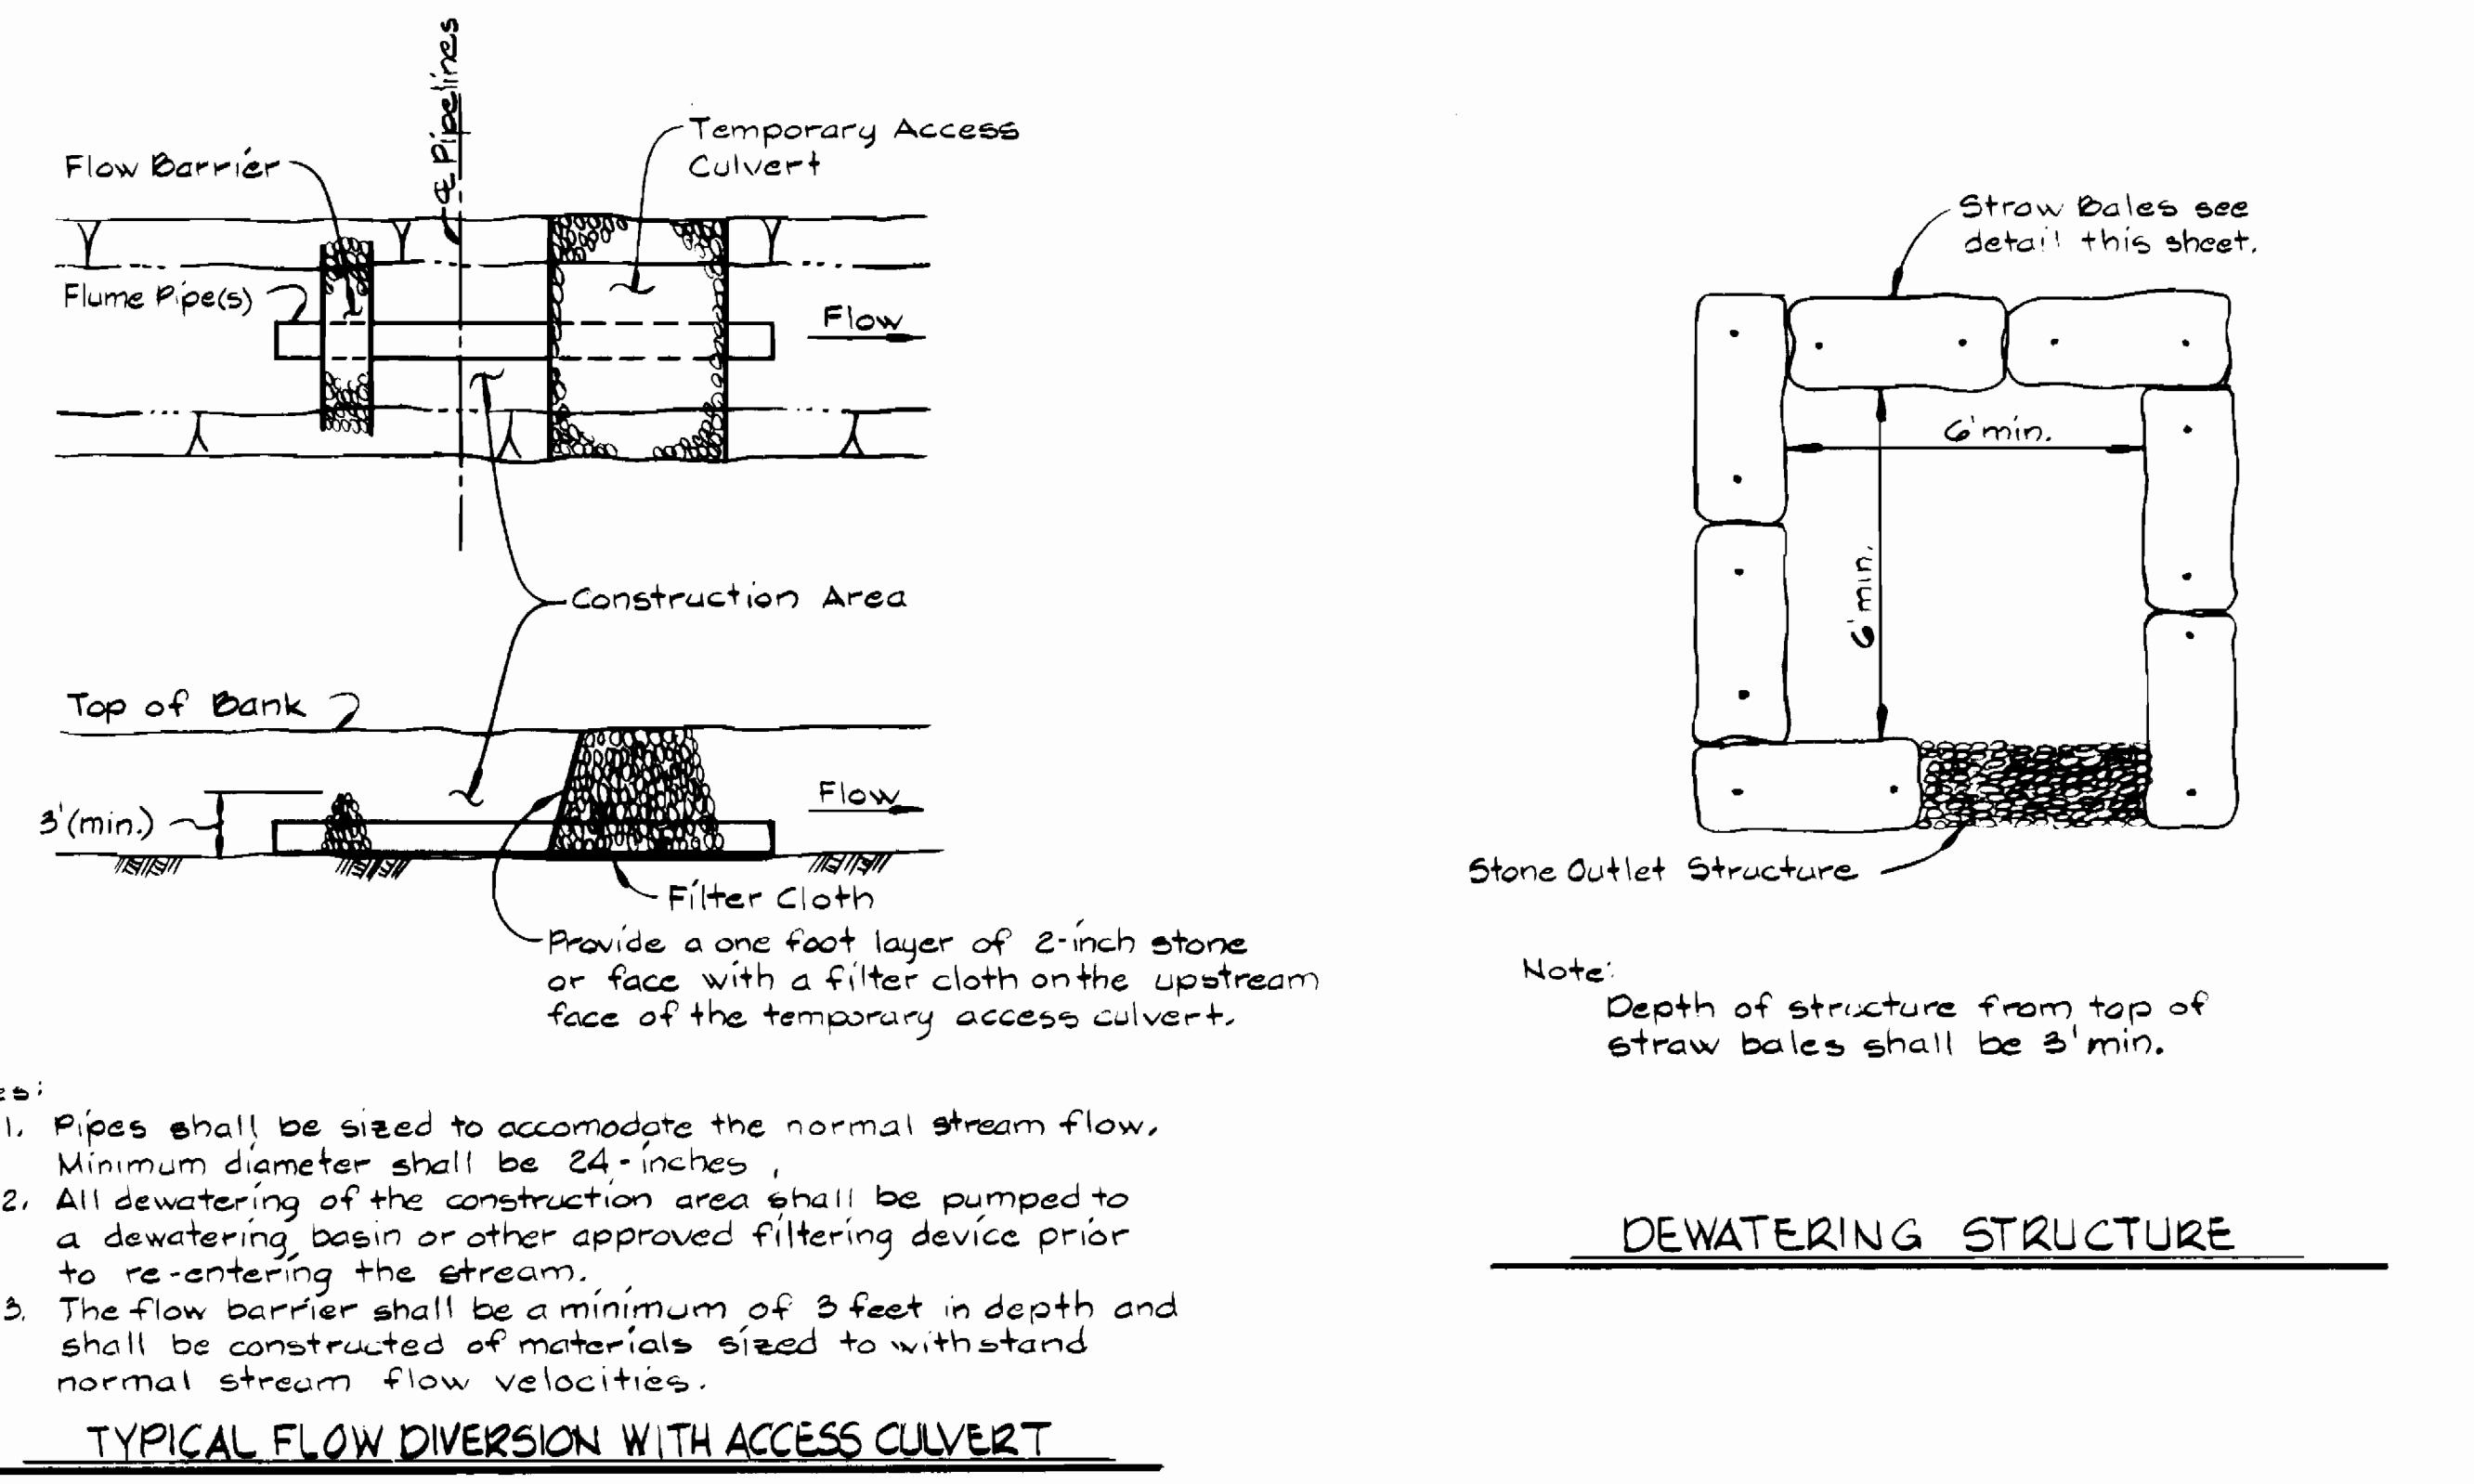 ℄ Pipelines
Temporary Access
Culvert
Flow Barrier
Flume Pipe(s)
Flow
Construction Area
Top of Bank
3'(min.)
Flow
Filter Cloth
Provide a one foot layer of 2-inch stone
or face with a filter cloth on the upstream
face of the temporary access culvert.
es:
1. Pipes shall be sized to accomodate the normal stream flow.
Minimum diameter shall be 24-inches
2. All dewatering of the construction area shall be pumped to
a dewatering basin or other approved filtering device prior
to re-entering the stream.
3. The flow barrier shall be a minimum of 3 feet in depth and
shall be constructed of materials sized to withstand
normal stream flow velocities.
TYPICAL FLOW DIVERSION WITH ACCESS CULVERT
Straw Bales see
detail this sheet.
6'min.
6'min.
Stone Outlet Structure
Note:
Depth of structure from top of
straw bales shall be 3'min.
DEWATERING STRUCTURE